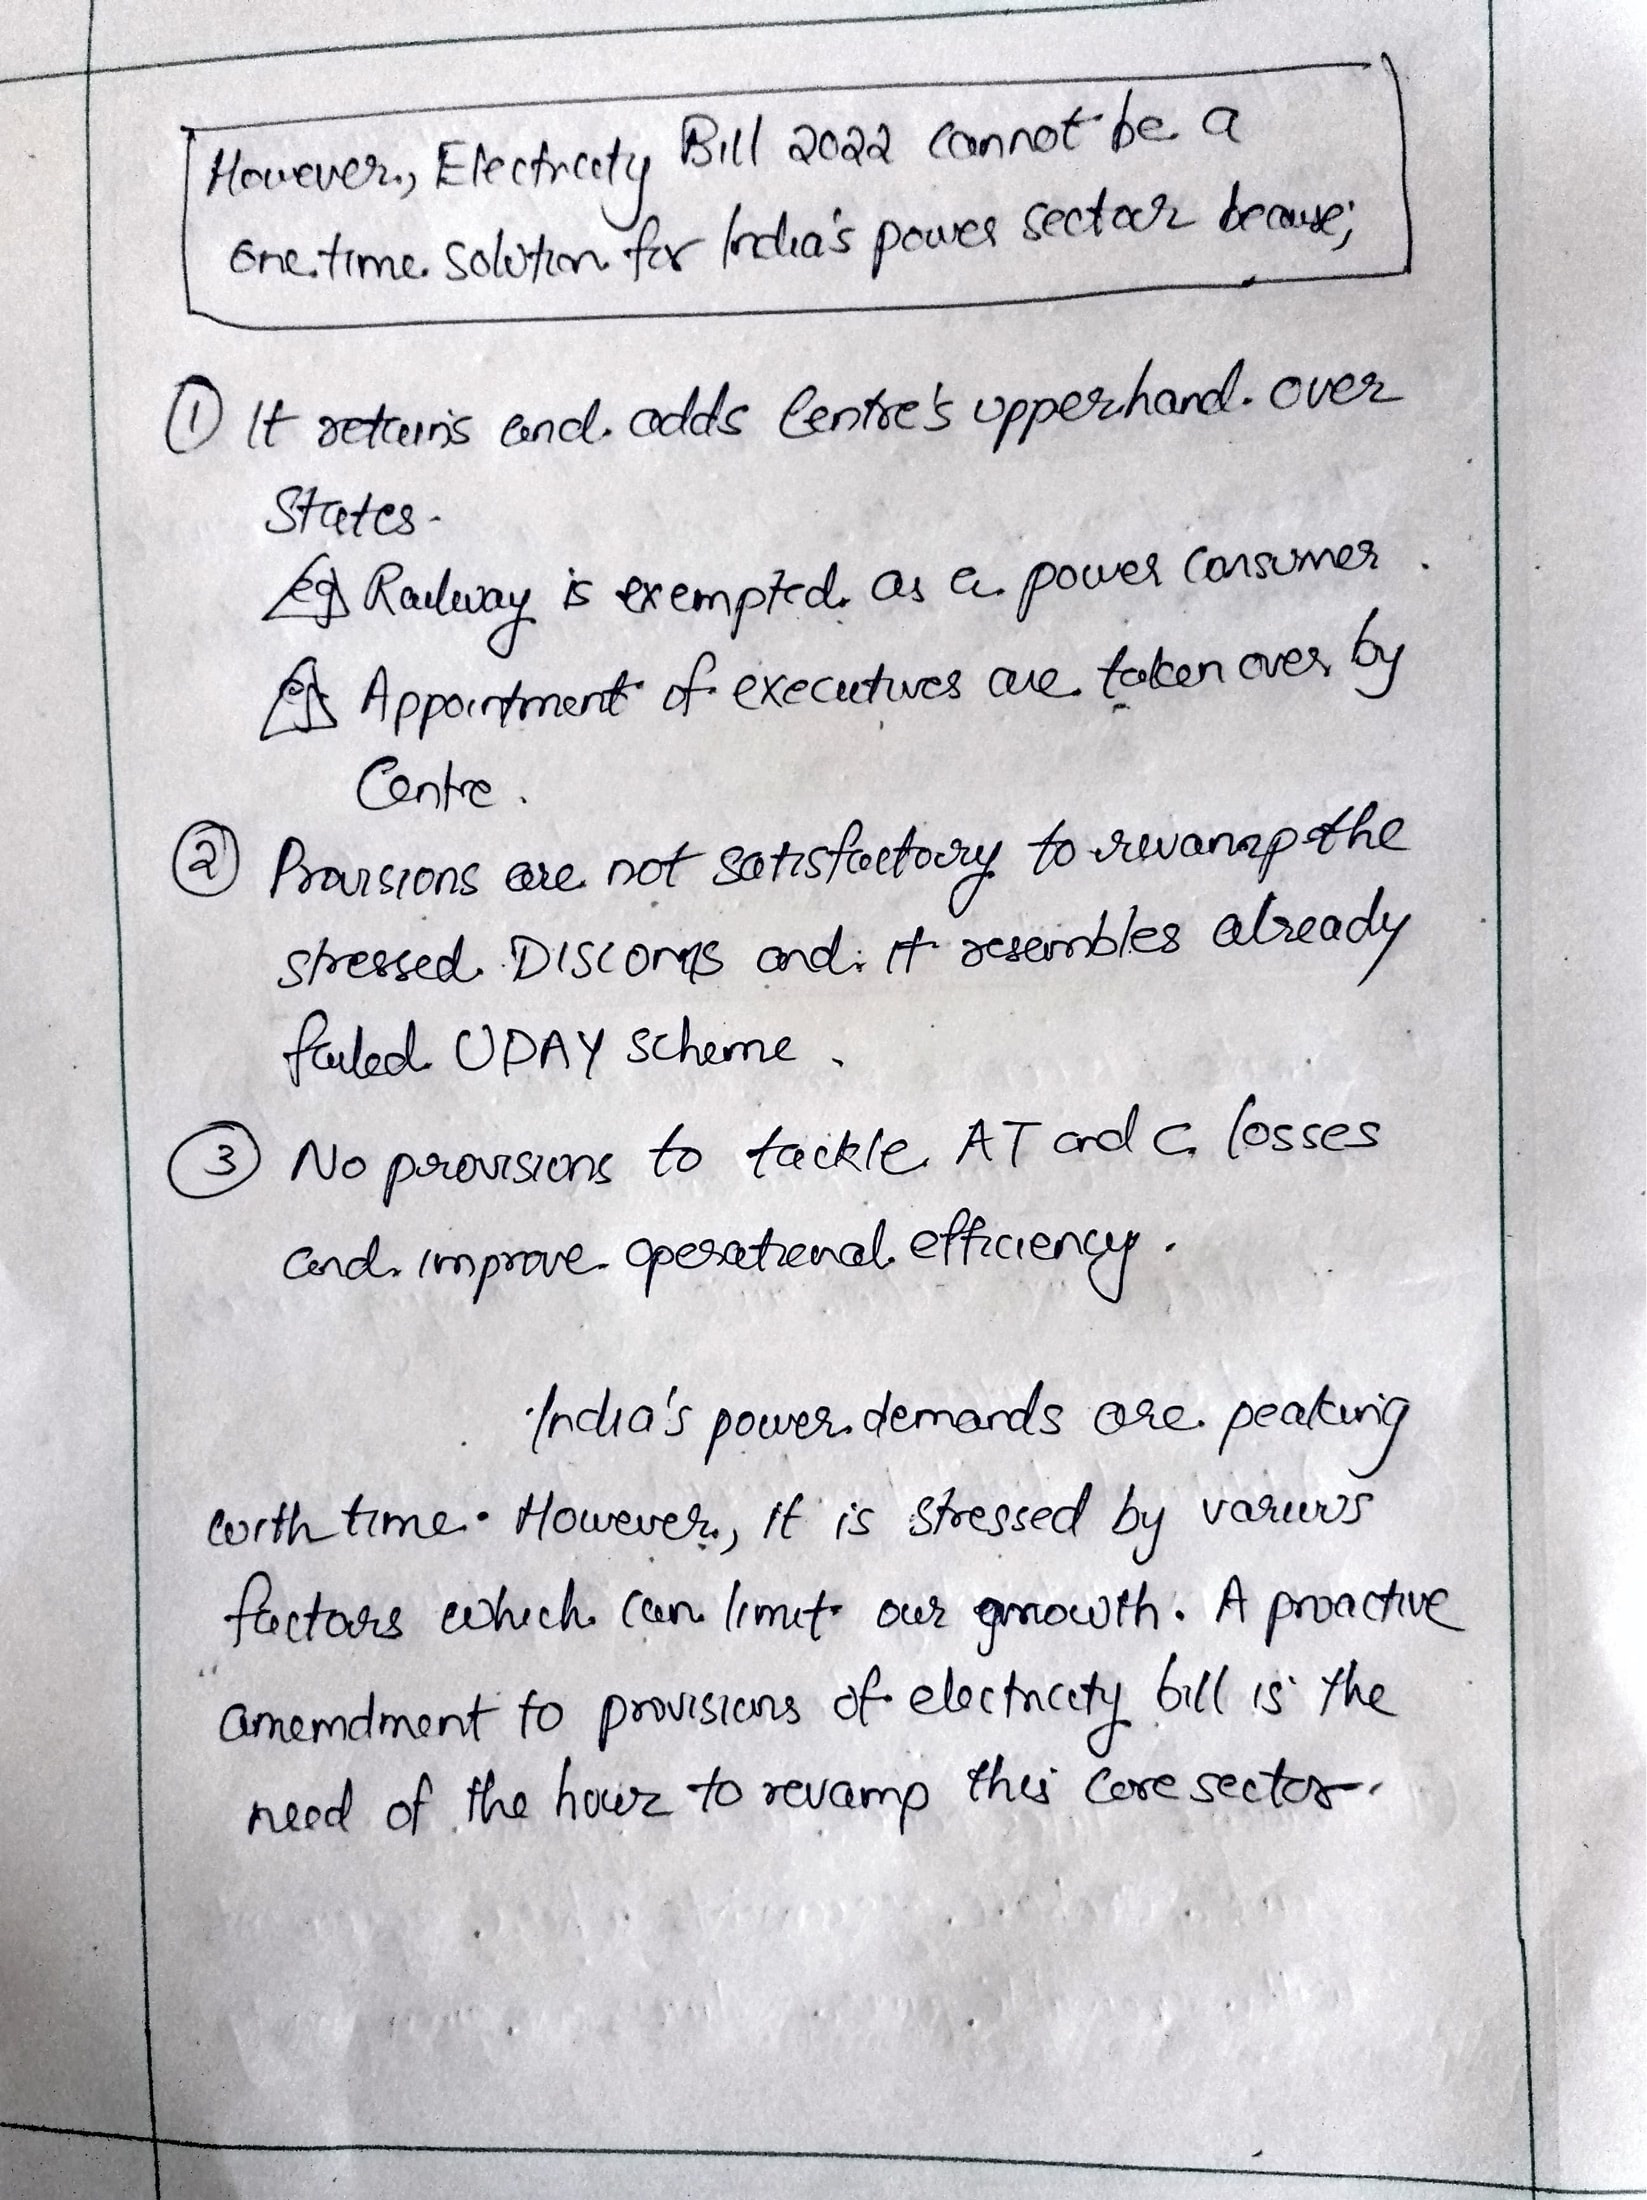 However, Electricity Bill 2022 cannot be a
one time solution for India's power sector because;
① It retains and adds Centre's upperhand over
States.
eg Railway is exempted as a power consumer.
eg Appointment of executives are taken over by
Centre.
② Provisions are not satisfactory to revamp the
stressed DISCOMS and it resembles already
failed UDAY scheme.
③ No provisions to tackle AT and C losses
and improve operational efficiency.
India's power demands are peaking
with time. However, it is stressed by various
factors which can limit our growth. A proactive
amemdment to provisions of electricity bill is the
need of the hour to revamp this core sector.